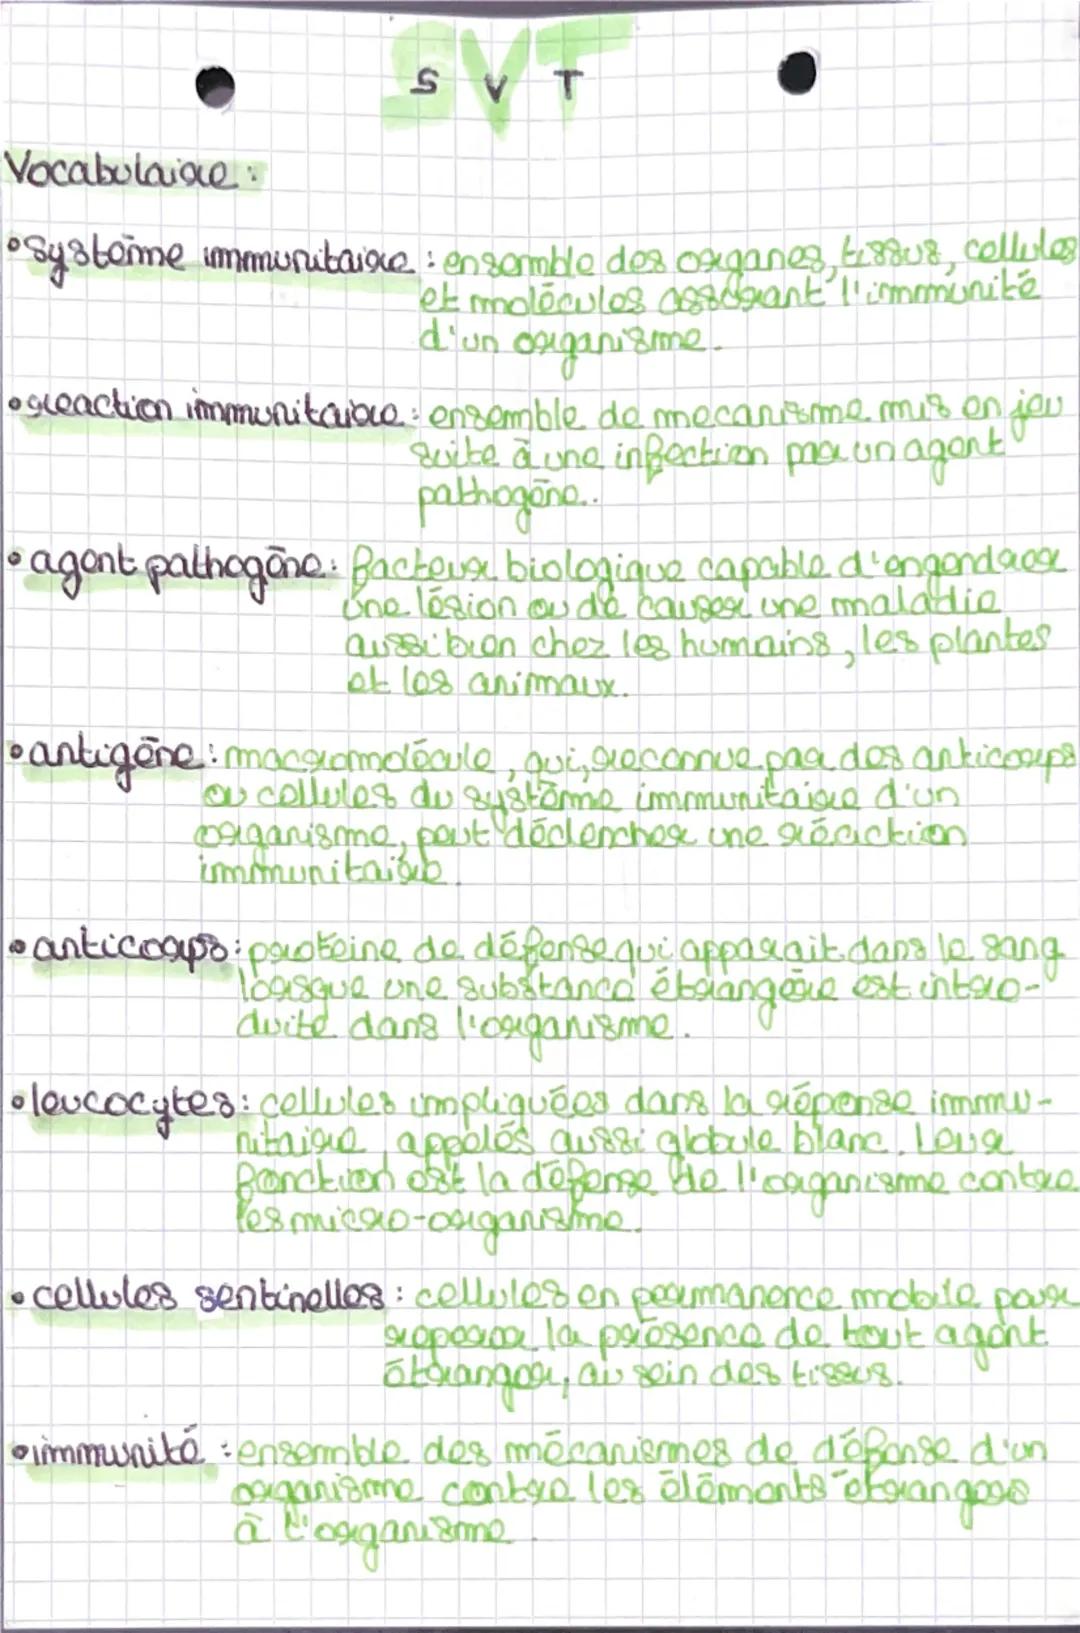 SVT
S V T
Vocabulaire :
• système immunitaire : ensemble des organes, tissus, cellules
et molécules assurant l'immunité
d'un organisme.
• reaction immunitaire : ensemble de mecanisme mis en jeu
suite à une infection par un agent
pathogène..
• agent pathogène : facteur biologique capable d'engendrer
une lésion ou de causer une maladie
aussi bien chez les humains, les plantes
et les animaux.
• antigène : macromolécule, qui, reconnue par des anticorps
ou cellules du système immunitaire d'un
organisme, peut déclencher une réaction
immunitaire.
• anticorps : proteine de défense qui apparait dans le sang
lorsque une substance étrangère est intro-
duite dans l'organisme.
• leucocytes : cellules impliquées dans la réponse immu-
nitaire, appelés aussi globule blanc. Leur
fonction est la défense de l'organisme contre
les micro-organisme.
• cellules sentinelles : cellules en permanence mobile pour
reperer la présence de tout agent
étranger, au sein des tissus.
• immunité : ensemble des mécanismes de défense d'un
organisme contre les éléments étrangers
à l'organisme.